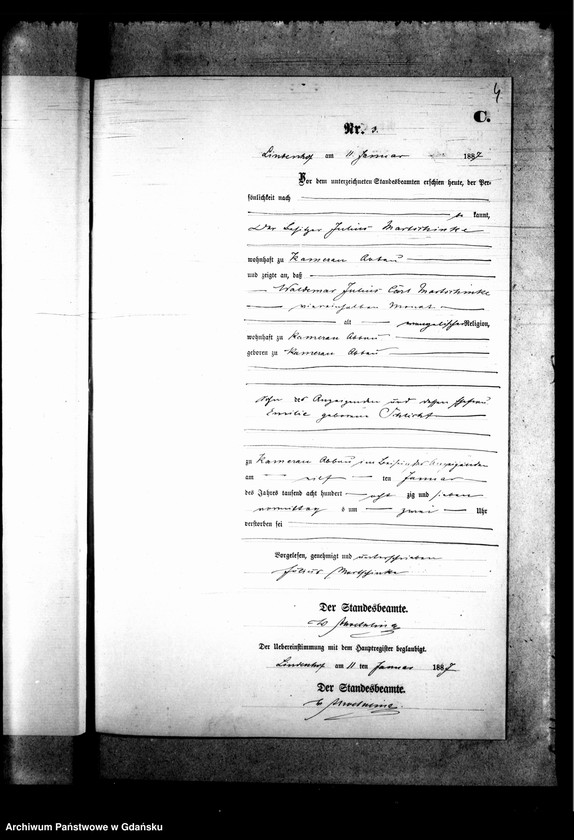 4
C.
Nr. 3.
Lindenhof am 11 Januar 1887
Vor dem unterzeichneten Standesbeamten erschien heute, der Per-
sönlichkeit nach
be kannt,
Der Besitzer Julius Martschinke
wohnhaft zu Kameran Abbau
und zeigte an, daß
Waldemar Julius Carl Martschinke
viereinhalben Monat
alt evangelischer Religion,
wohnhaft zu Kameran Abbau
geboren zu Kameran Abbau
Sohn des Anzeigenden und dessen Ehefrau
Emilie geborene Schlicht
zu Kameran Abbau im Beisein des Anzeigenden
am ten Januar
des Jahres tausend acht hundert acht zig und sieben
vormittag s um zwei Uhr
verstorben sei
Vorgelesen, genehmigt und unterschrieben
Julius Martschinke
Der Standesbeamte.
Der Uebereinstimmung mit dem Hauptregister beglaubigt.
Lindenhof am 11 ten Januar 1887
Der Standesbeamte.
Archiwum Państwowe w Gdańsku